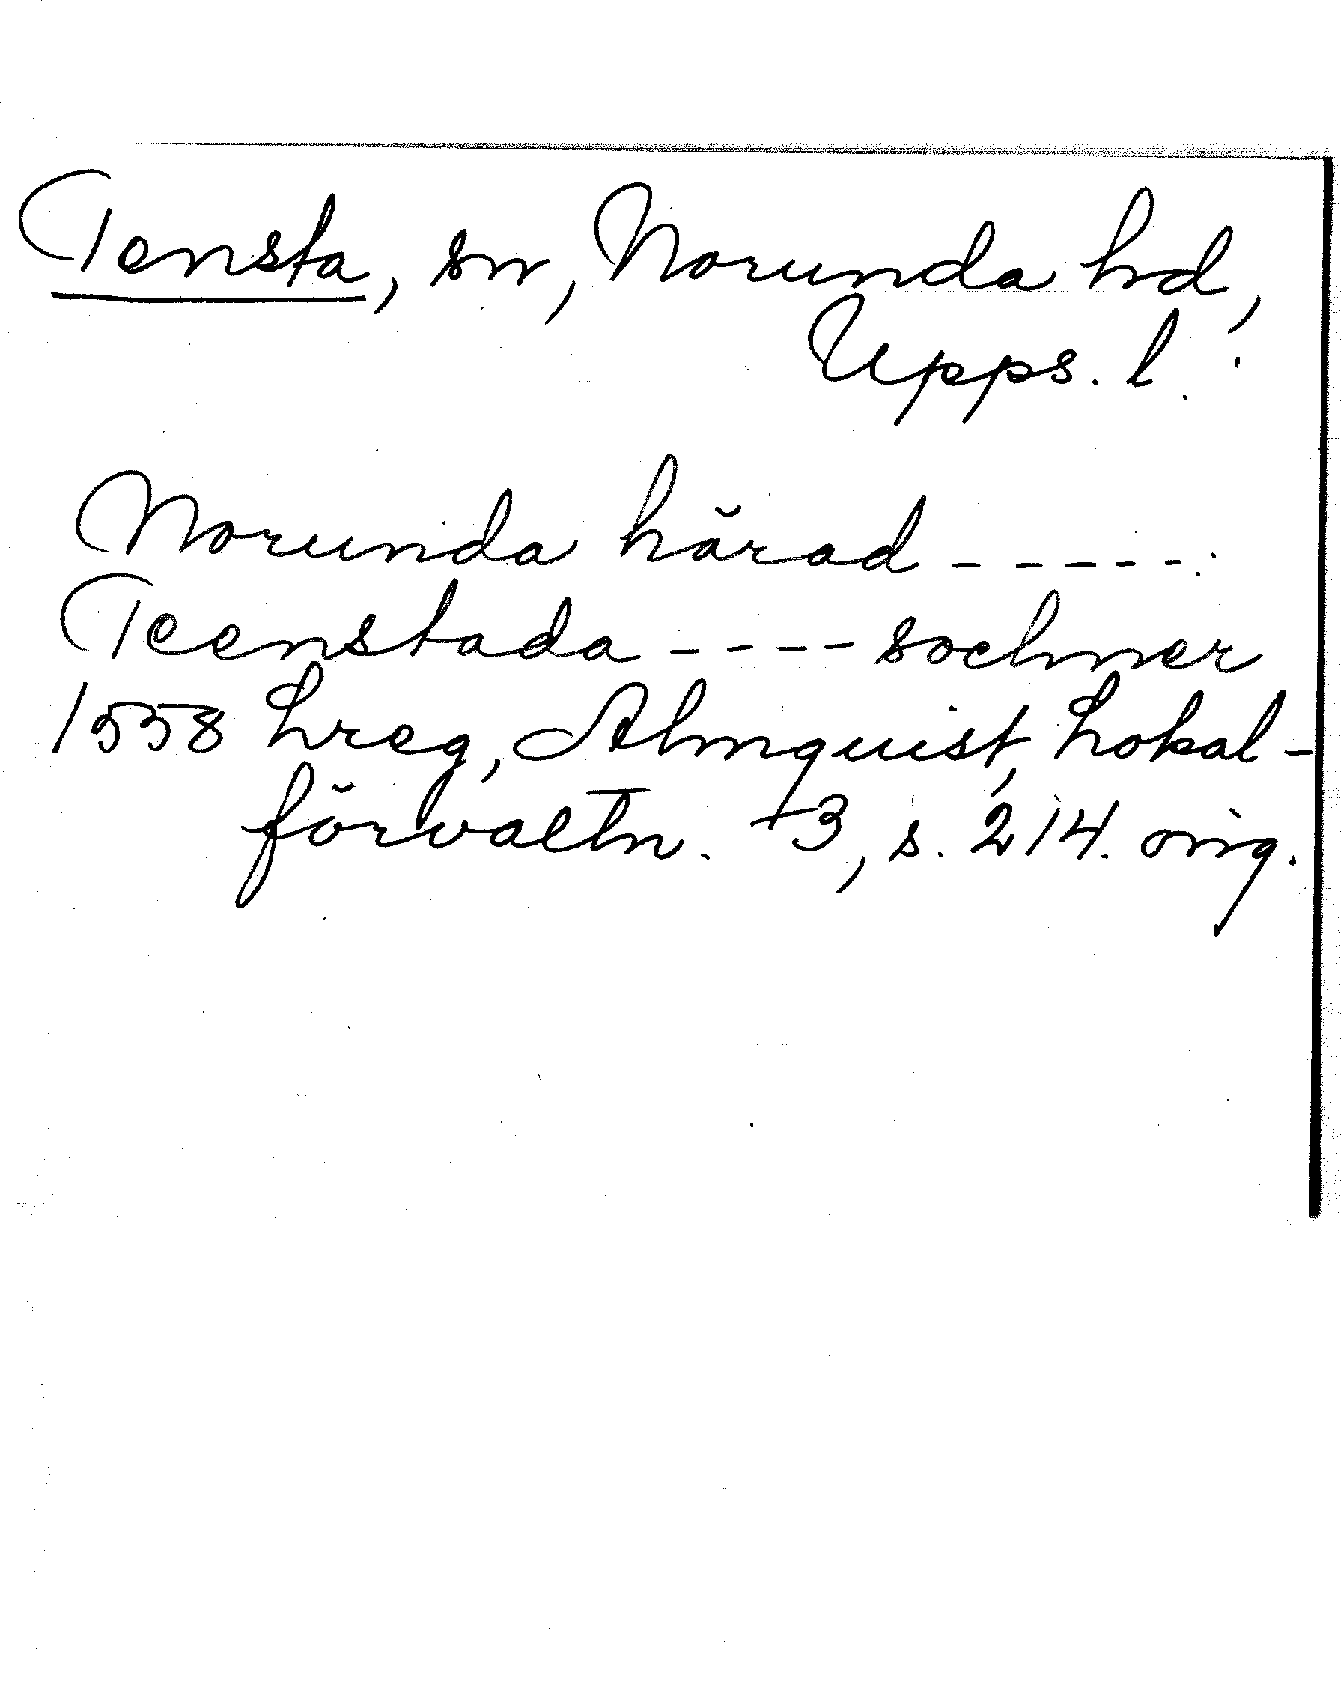 Tensta, sn, Norunda hd,
Upps. l.
Norunda härad -----
Teenstada ---- sochner
1558 Lreg, Almquist, Lokal-
förvaltn. +3, s. 214. orig.